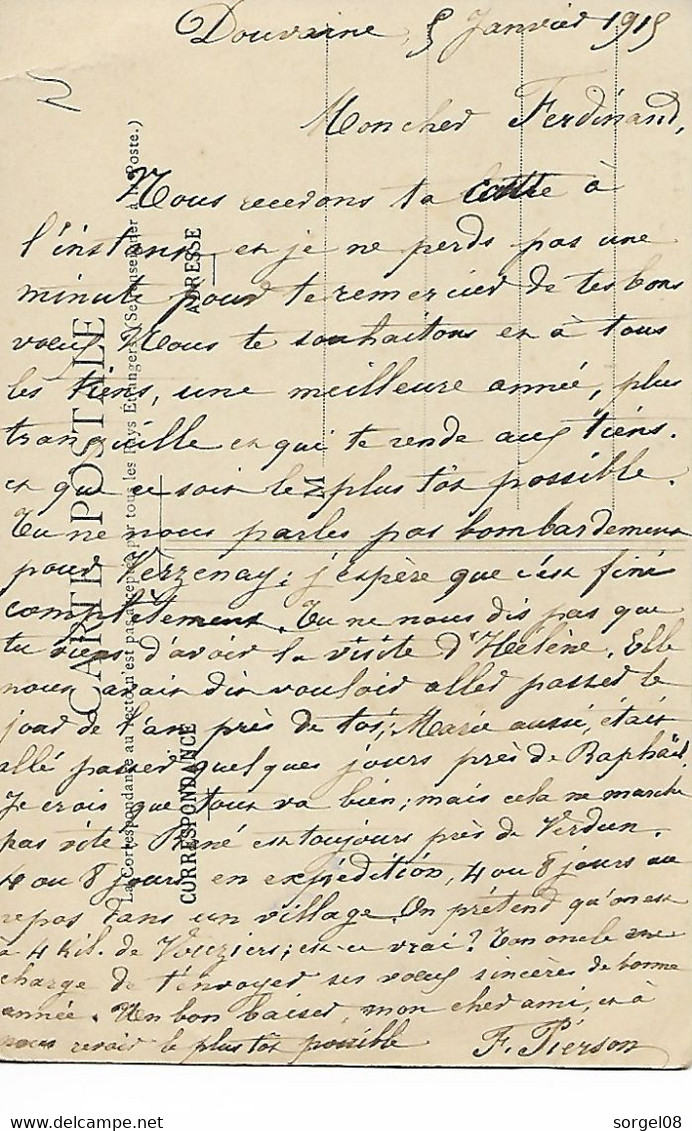 Douvaine, 5 Janvier 1915
Mon cher Ferdinand,
Nous recevons ta carte à
l'instant et je ne perds pas une
minute pour te remercier de tes bons
vœux. Nous te souhaitons et à tous
les tiens, une meilleure année, plus
tranquille et qui te rende aux tiens.
et que ce soit le plus tôt possible.
Tu ne nous parles pas bombardement
pour Verzenay; j'espère que c'est fini
complètement. Tu ne nous dis pas que
tu viens d'avoir la visite d'Hélène. Elle
nous avait dit vouloir aller passer le
jour de l'an près de toi; Marie aussi, était
allé passer quelques jours près de Raphaël.
Je crois que tout va bien; mais cela ne marche
pas vite. René est toujours près de Verdun.
4 ou 8 jours en expédition, 4 ou 8 jours au
repos dans un village. On prétend qu'on est
à 4 kil. de Vouziers; est-ce vrai? Ton oncle me
charge de t'envoyer ses vœux sincères de bonne
année. Un bon baiser, mon cher ami, et à
nous revoir le plus tôt possible
F. Pierson
CARTE POSTALE
La Correspondance au recto n'est pas acceptée par tous les Pays Étrangers (Se renseigner à la Poste.)
CORRESPONDANCE
ADRESSE
M
sorgel08